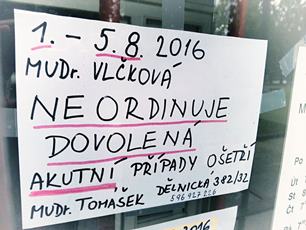 1. - 5.8. 2016
MUDr. VLČKOVÁ
NEORDINUJE
DOVOLENÁ
AKUTNÍ PŘÍPADY OŠETŘÍ
MUDr. TOMAŠEK DĚLNICKÁ 382/32
596927226
2016